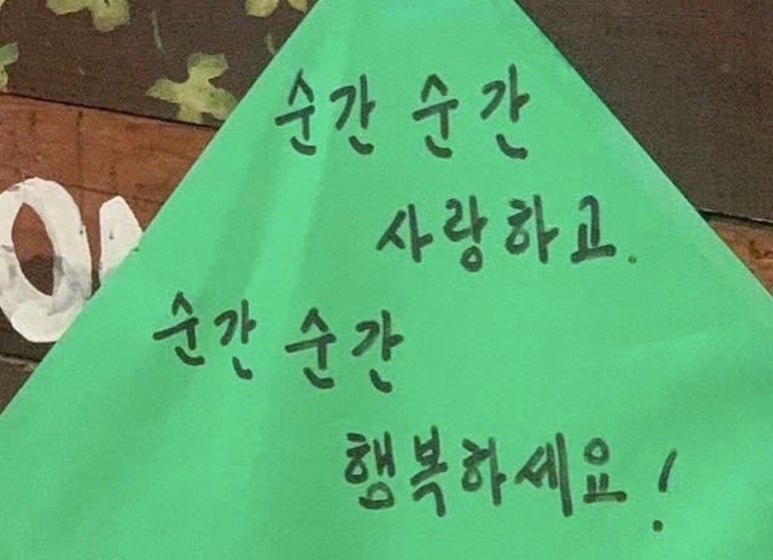 순간 순간
사랑하고.
순간 순간
행복하세요!